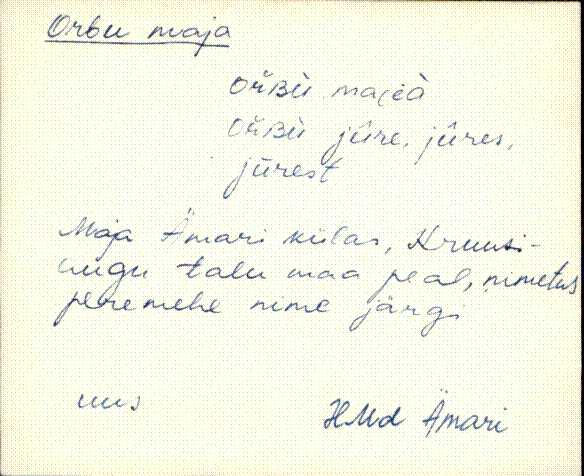 Orbu maja
ořʙù majeà
ořʙù jûre, jûres,
jūrest
Maja Ämari külas, Kruusi-
augu talu maa peal, nimetus
peremehe nime järgi
uus
HMd Ämari